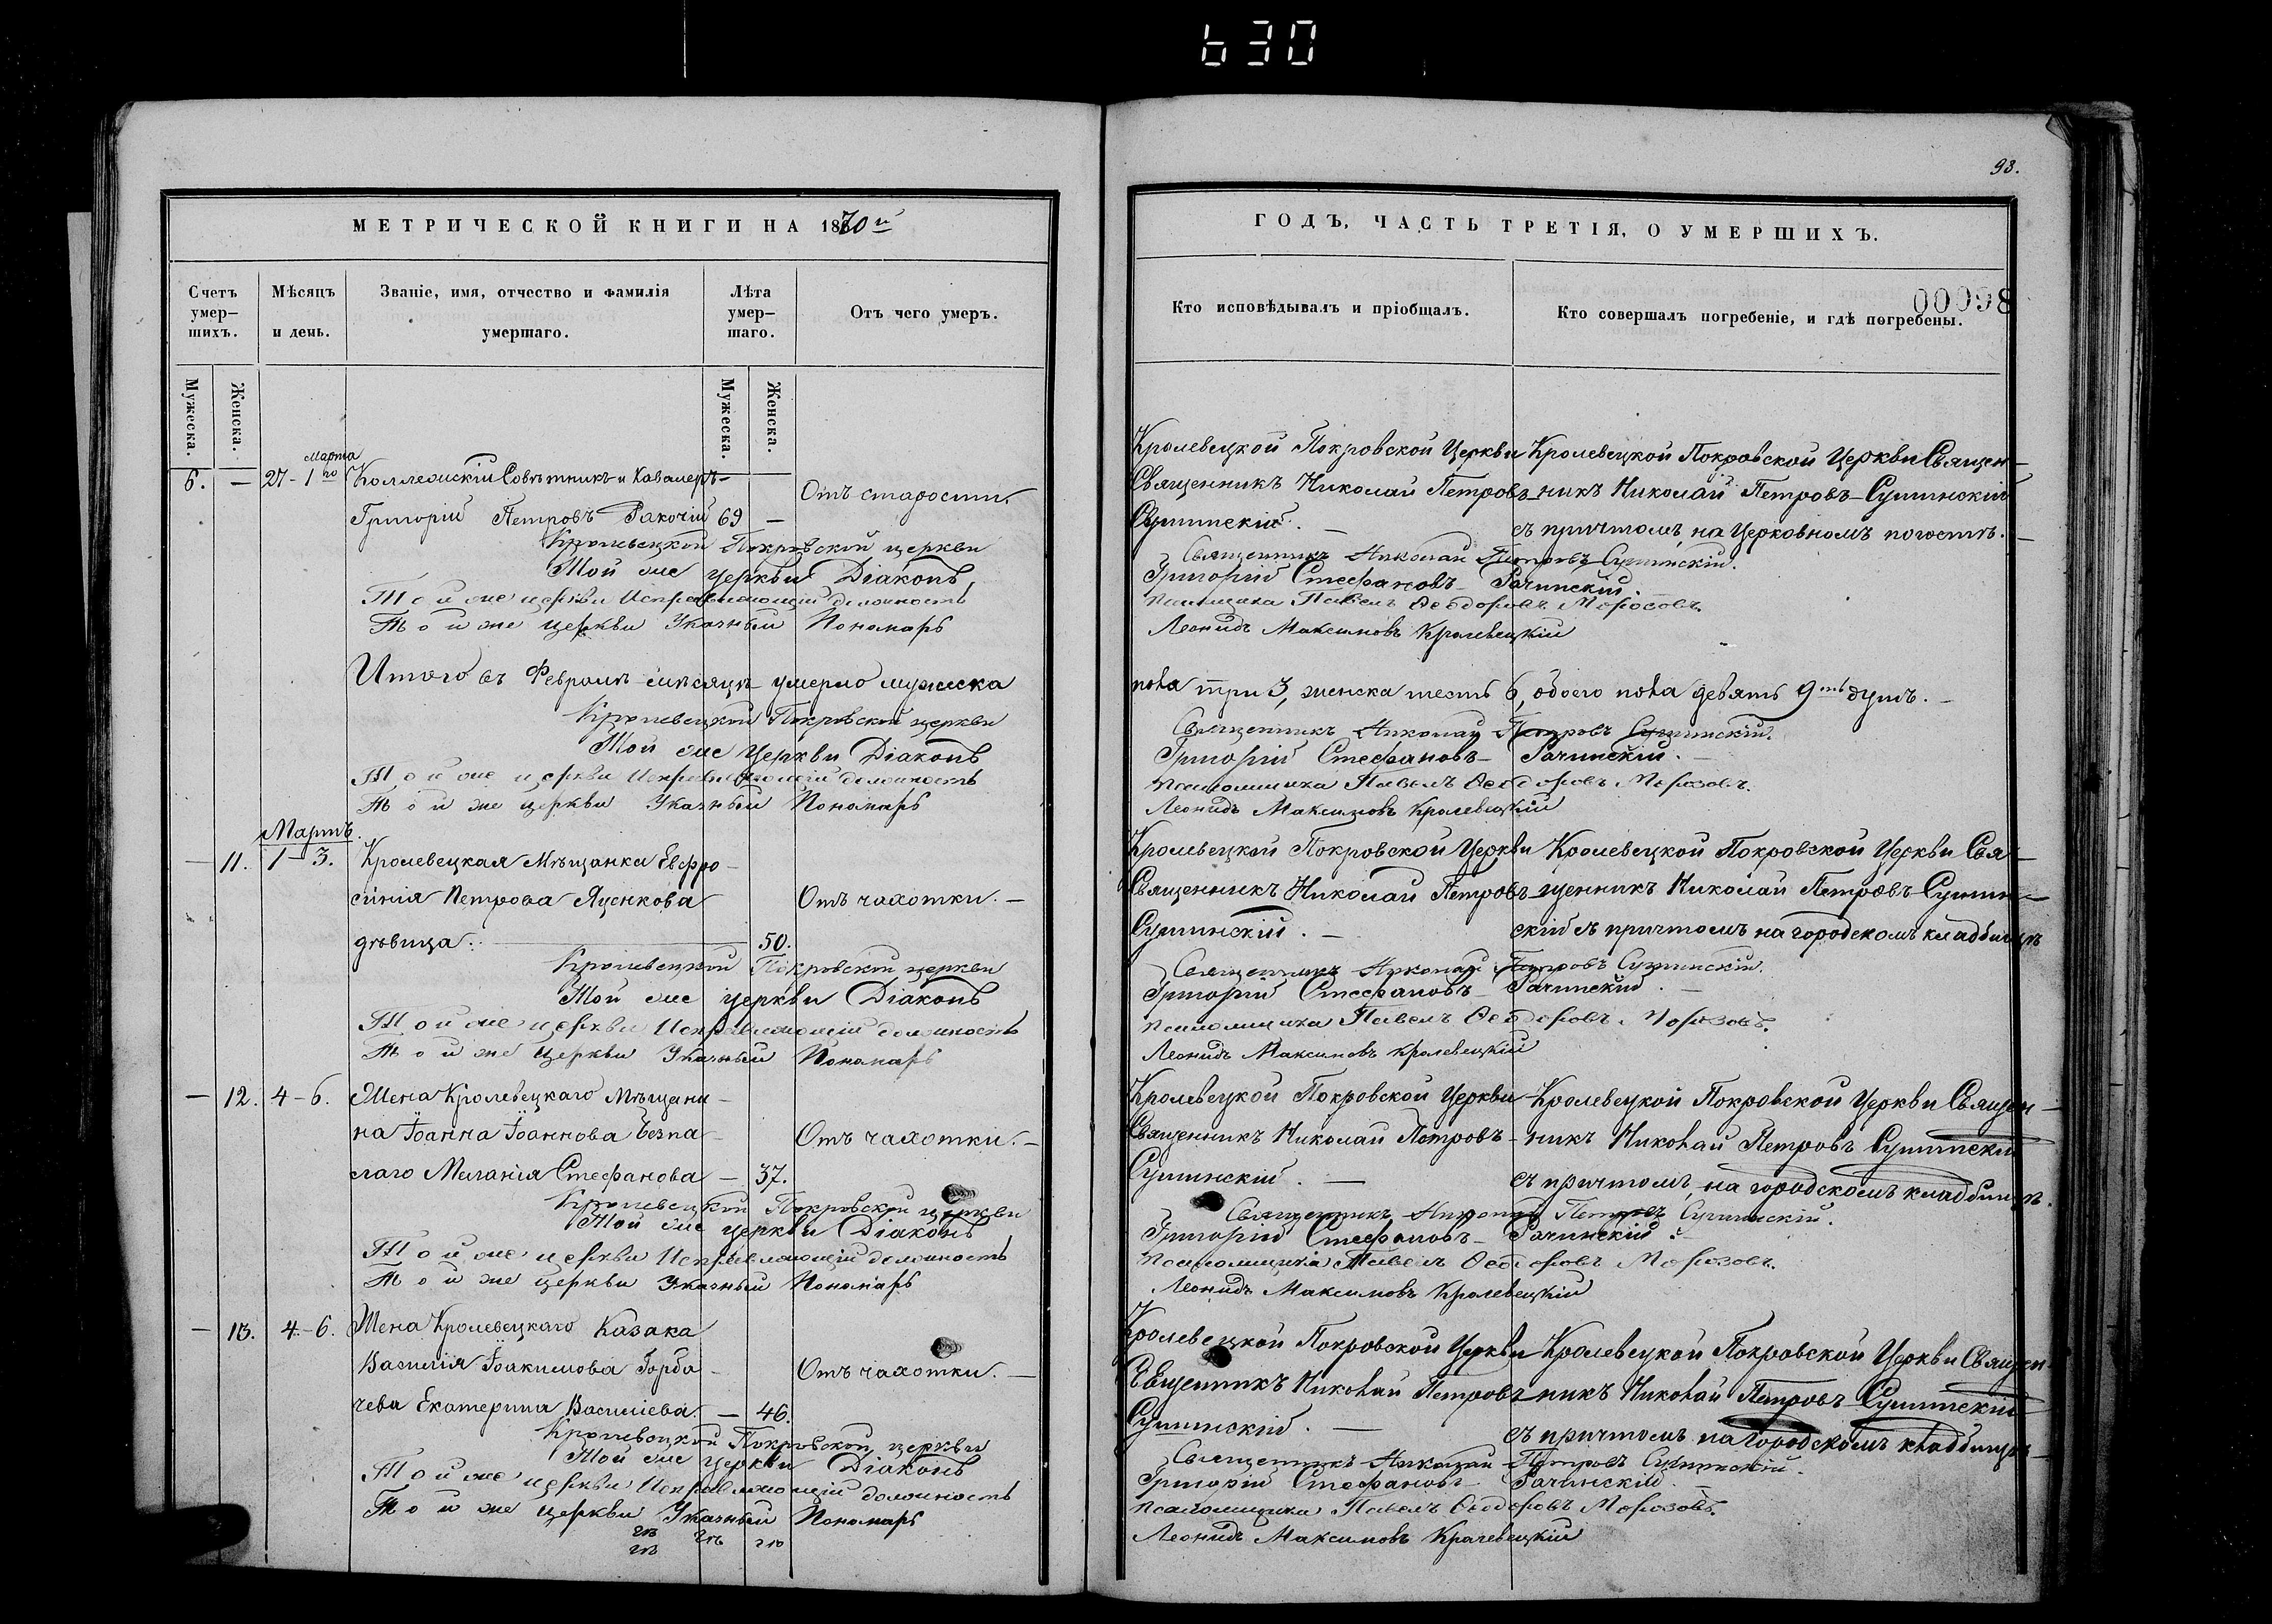 630
93.
МЕТРИЧЕСКОЙ КНИГИ НА 1870й
ГОДЪ, ЧАСТЬ ТРЕТІЯ, О УМЕРШИХЪ.
00098
Счетъ умер-
шихъ.
Мѣсяцъ
и день.
Званіе, имя, отчество и фамилія
умершаго.
Лѣта
умер-
шаго.
Отъ чего умеръ.
Кто исповѣдывалъ и пріобщалъ.
Кто совершалъ погребеніе, и гдѣ погребены.
Мужеска.
Женска.
Мужеска.
Женска.
6. — 27 - 1го Марта
Коллежскій Совѣтникъ и Кавалеръ
Григорій Петровъ Ракочій 69 —
Отъ старости.
Кролевецкой Покровской Церкви
Священникъ Николай Петровъ
Сушинскій. —
Кролевецкой Покровской Церкви Священ-
никъ Николай Петровъ Сушинскій
съ причтомъ, на Церковномъ погостѣ. —
Кролевецкой Покровской церкви Священникъ Николай Петровъ Сушинскій.
Той же церкви Діаконъ Григорій Стефановъ Рачинскій.
Той же церкви Исправляющій должность псаломщика Павелъ Ѳеодоровъ Морозовъ.
Той же церкви Указный Пономарь Леонидъ Максимовъ Кролевецкій
Итого въ Февралѣ мѣсяцѣ умерло мужеска пола три 3, женска шесть 6, обоего пола девять 9ть душъ. —
Кролевецкой Покровской церкви Священникъ Николай Петровъ Сушинскій.
Той же церкви Діаконъ Григорій Стефановъ Рачинскій. —
Той же церкви Исправляющій должность псаломщика Павелъ Ѳеодоровъ Морозовъ.
Той же церкви Указный Пономарь Леонидъ Максимовъ Кролевецкій
Мартъ.
— 11. 1 - 3.
Кролевецкая Мѣщанка Евфро-
синія Петрова Яценкова
дѣвица. 50.
Отъ чахотки. —
Кролевецкой Покровской Церкви
Священникъ Николай Петровъ
Сушинскій. —
Кролевецкой Покровской Церкви Свя-
щенникъ Николай Петровъ Сушин-
скій съ причтомъ на городскомъ кладбищѣ
Кролевецкой Покровской церкви Священникъ Николай Петровъ Сушинскій.
Той же церкви Діаконъ Григорій Стефановъ Рачинскій. —
Той же церкви Исправляющій должность псаломщика Павелъ Ѳеодоровъ Морозовъ.
Той же церкви Указный Пономарь Леонидъ Максимовъ Кролевецкій
— 12. 4 - 6.
Жена Кролевецкаго Мѣщани-
на Іоанна Іоаннова Безпа-
лаго Миланія Стефанова — 37.
Отъ чахотки. —
Кролевецкой Покровской Церкви
Священникъ Николай Петровъ
Сушинскій. —
Кролевецкой Покровской Церкви Священ-
никъ Николай Петровъ Сушинскій
съ причтомъ, на городскомъ кладбищѣ.
Кролевецкой Покровской церкви Священникъ Николай Петровъ Сушинскій.
Той же церкви Діаконъ Григорій Стефановъ Рачинскій.
Той же церкви Исправляющій должность псаломщика Павелъ Ѳеодоровъ Морозовъ.
Той же церкви Указный Пономарь Леонидъ Максимовъ Кролевецкій
— 13. 4 - 6.
Жена Кролевецкаго Казака
Василія Іоакимова Горба-
чева Екатерина Василіева. — 46.
Отъ чахотки. —
Кролевецкой Покровской Церкви
Священникъ Николай Петровъ
Сушинскій. —
Кролевецкой Покровской Церкви Священ-
никъ Николай Петровъ Сушинскій
съ причтомъ на городскомъ кладбищѣ —
Кролевецкой Покровской церкви Священникъ Николай Петровъ Сушинскій.
Той же церкви Діаконъ Григорій Стефановъ Рачинскій. —
Той же церкви Исправляющій должность псаломщика Павелъ Ѳеодоровъ Морозовъ.
Той же церкви Указный Пономарь Леонидъ Максимовъ Кролевецкій